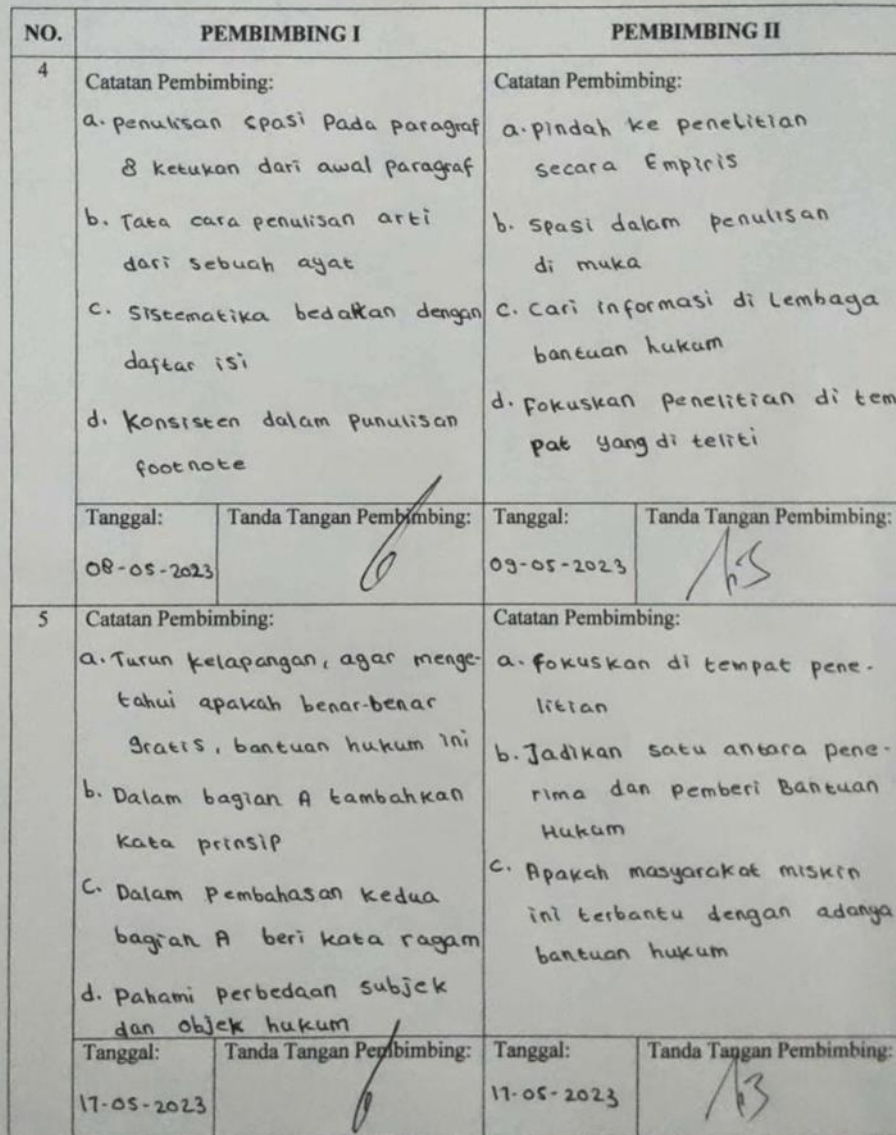 NO. PEMBIMBING I PEMBIMBING II
4
Catatan Pembimbing:
a. penulisan spasi Pada paragraf
8 ketukan dari awal paragraf
b. Tata cara penulisan arti
dari sebuah ayat
c. Sistematika bedakan dengan
daftar isi
d. Konsisten dalam Punulisan
footnote
Tanggal: Tanda Tangan Pembimbing:
08-05-2023
Catatan Pembimbing:
a. pindah ke penelitian
secara Empiris
b. Spasi dalam penulisan
di muka
c. Cari informasi di Lembaga
bantuan hukum
d. Fokuskan Penelitian di tem
pat yang di teliti
Tanggal: Tanda Tangan Pembimbing:
09-05-2023
5
Catatan Pembimbing:
a. Turun kelapangan, agar menge-
tahui apakah benar-benar
gratis, bantuan hukum ini
b. Dalam bagian A tambahkan
kata prinsip
C. Dalam Pembahasan kedua
bagian A beri kata ragam
d. Pahami perbedaan subjek
dan objek hukum
Tanggal: Tanda Tangan Pembimbing:
17-05-2023
Catatan Pembimbing:
a. fokuskan di tempat pene-
litian
b. Jadikan satu antara pene-
rima dan Pemberi Bantuan
Hukum
c. Apakah masyarakat miskin
ini terbantu dengan adanya
bantuan hukum
Tanggal: Tanda Tangan Pembimbing:
17-05-2023